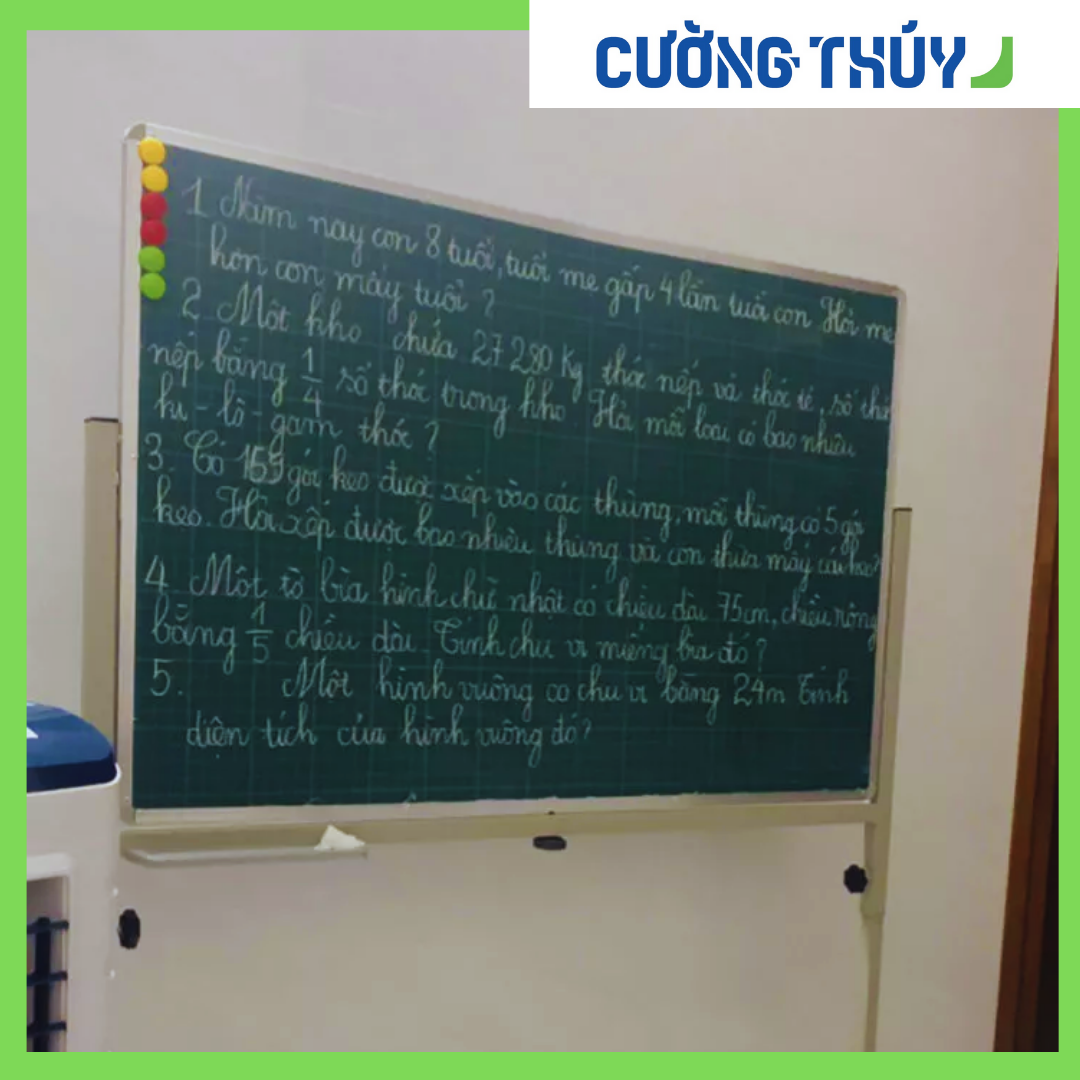 CƯỜNG THÚY
1 Năm nay con 8 tuổi, tuổi mẹ gấp 4 lần tuổi con Hỏi mẹ
hơn con mấy tuổi ?
2 Một kho chứa 27 280 kg thóc nếp và thóc tẻ, số thóc
nếp bằng 1/4 số thóc trong kho Hỏi mỗi loại có bao nhiêu
ki - lô - gam thóc ?
3. Có 159 gói kẹo được xếp vào các thùng, mỗi thùng có 5 gói
kẹo. Hỏi xếp được bao nhiêu thùng và còn thừa mấy cái kẹo?
4 Một tờ bìa hình chữ nhật có chiều dài 75cm, chiều rộng
bằng 1/5 chiều dài. Tính chu vi miếng bìa đó?
5. Một hình vuông có chu vi bằng 24m Tính
diện tích của hình vuông đó?